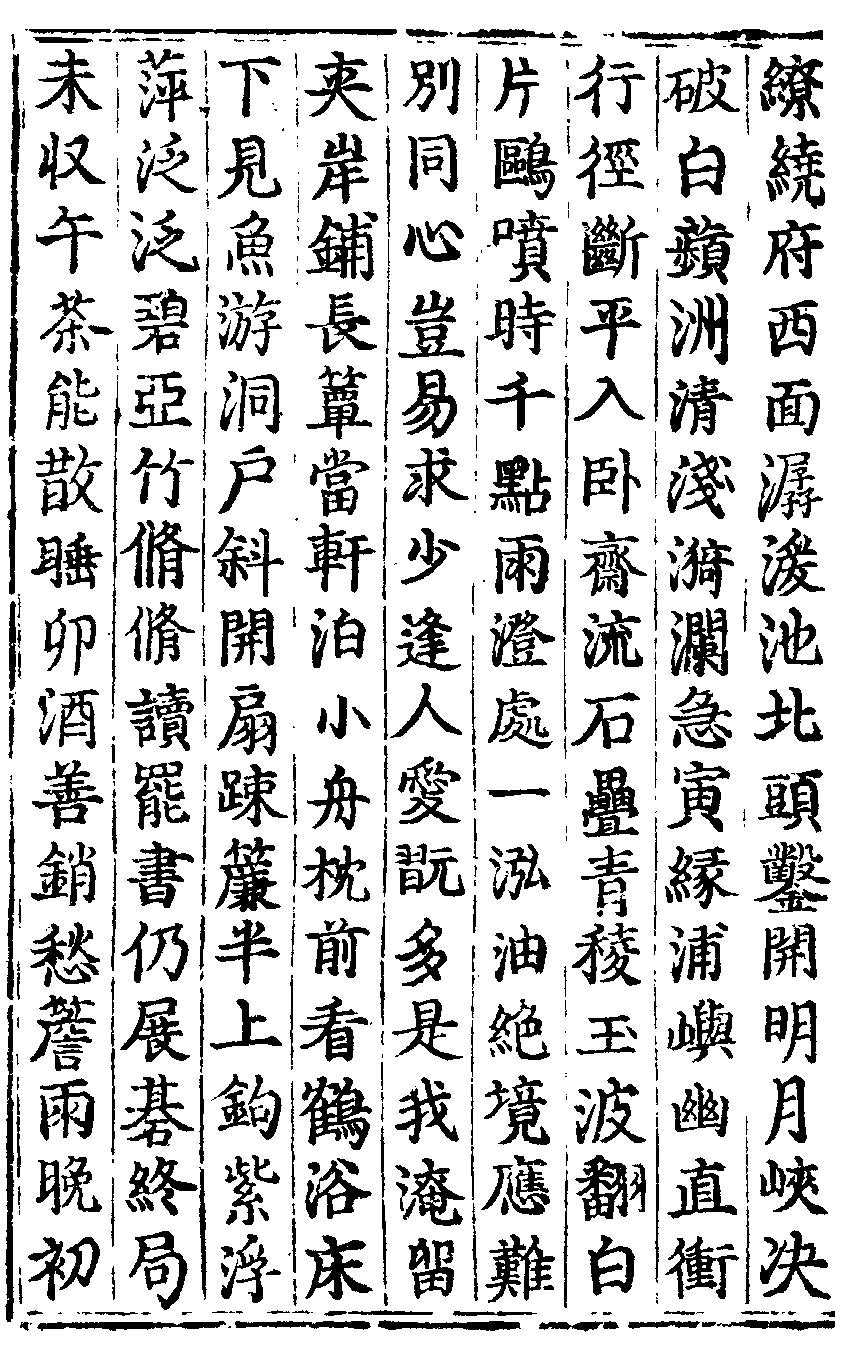 繚繞府西面潺湲池北頭鑿開明月峽决
破白蘋洲清淺漪瀾急寅縁浦嶼幽直衝
行徑斷平入卧齋流石疊青稜玉波翻白
片鷗噴時千點雨澄處一泓油絶境應難
別同心豈易求少逢人愛翫多是我淹留
夾岸鋪長簟當軒泊小舟枕前看鶴浴床
下見魚游洞戶斜開扇踈簾半上鉤紫浮
萍泛泛碧亞竹脩脩讀罷書仍展碁終局
未收午茶能散睡卯酒善銷愁簷雨晚初